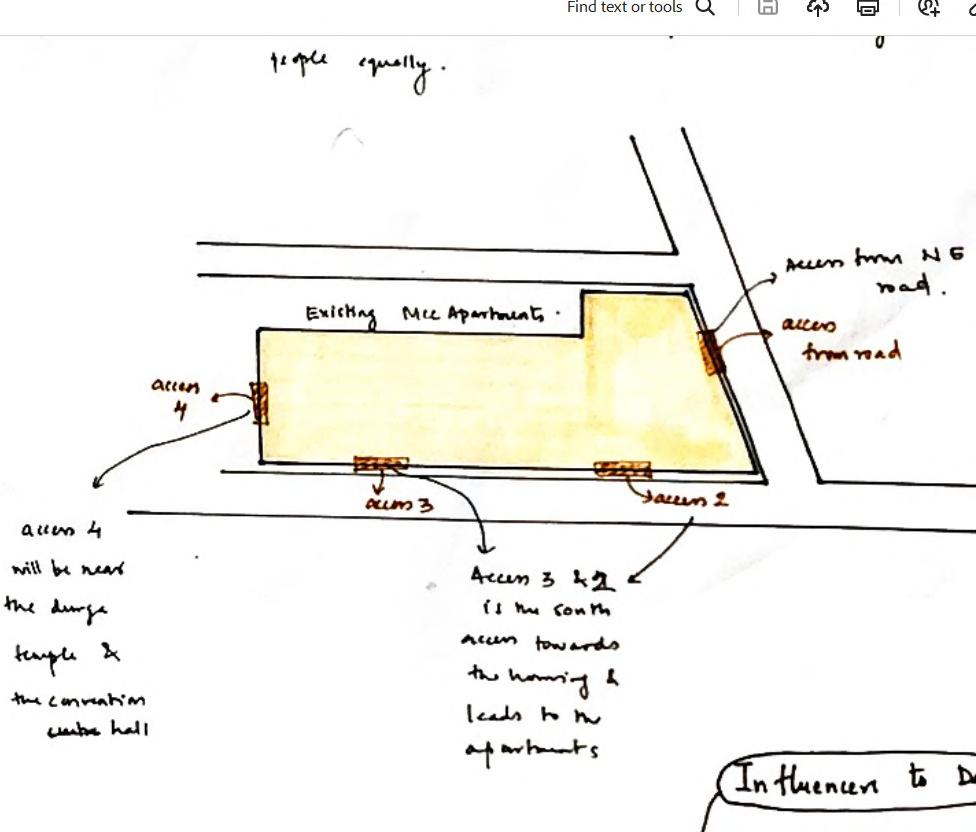 Find text or tools
people equally.
Access from NE
road.
Existing Mcc Apartments.
access
from road
access
4
access 3
access 2
access 4
will be near
the durga
temple &
the convention
centre hall
Access 3 & 2
is the south
access towards
the housing &
leads to the
apartments
Influencers to